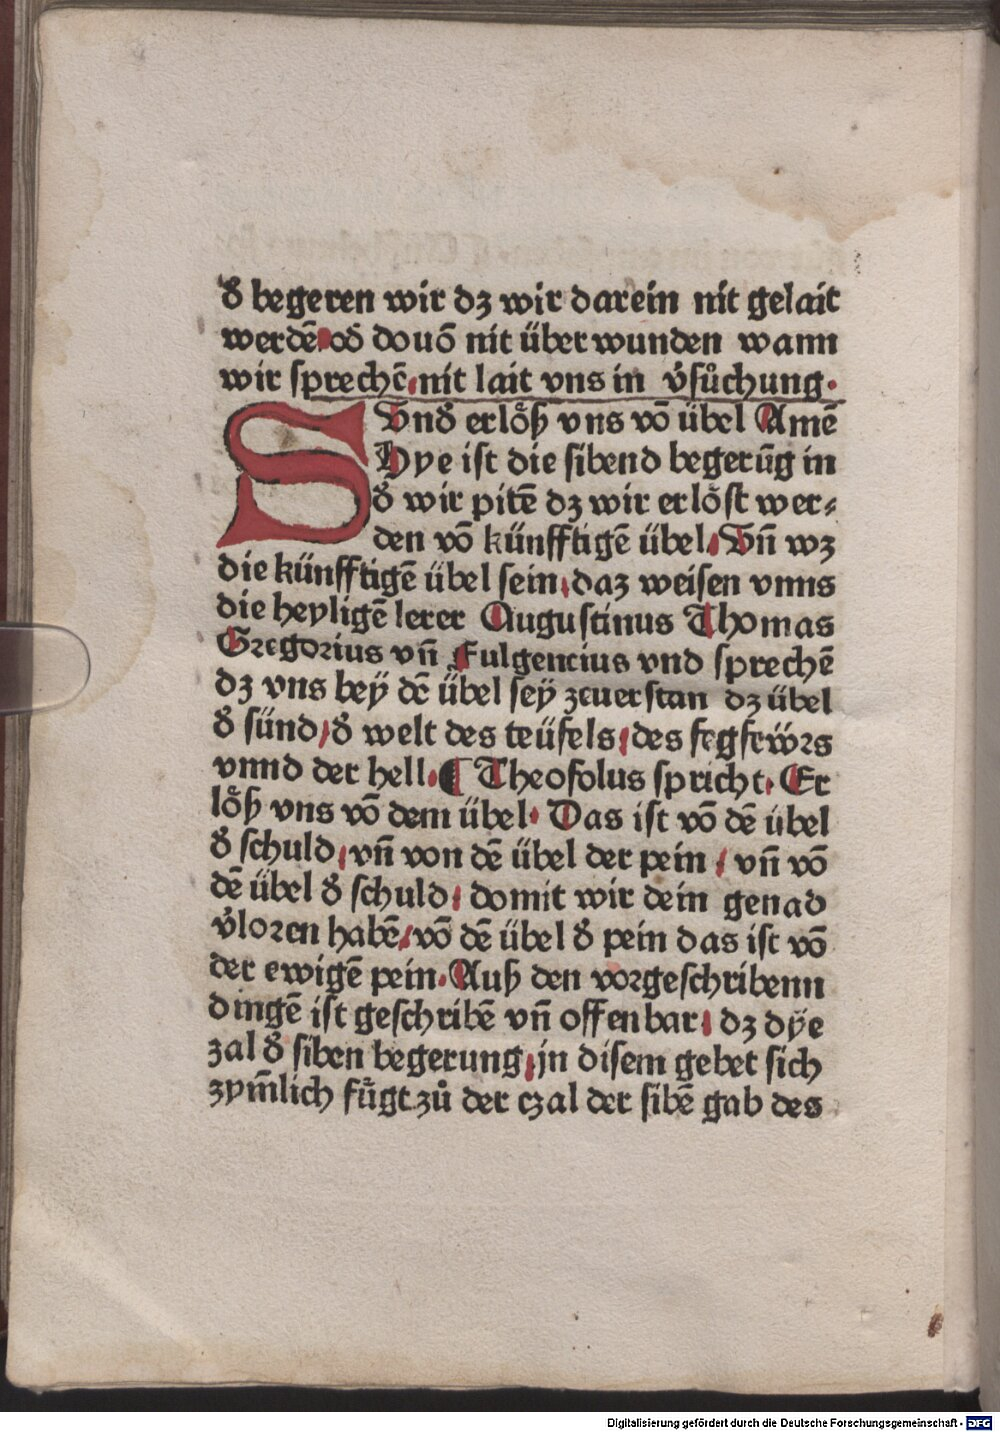 d᷑ begeren wir dz wir darein nit gelait
werdē od᷑ douō nit über wunden wann
wir sprechē nit lait vns in v᷑sůchung.
S Vnd᷑ erlöß vns vō übel Amē
Hye ist die sibend begerūg in
d᷑ wir pitē dz wir erlöst wer⸗
den vō künfftigē übel. Vn̄ wz
die künfftigē übel sein, daz weisen vnns
die heyligē lerer Augustinus Thomas
Gregorius vn̄ Fulgencius vnd sprechē
dz vns beÿ dē übel seÿ zeuerstan dz übel
d᷑ sünd, d᷑ welt des teüfels, des fegfeẅrs
vnnd der hell. ¶ Theofolus spricht. Er
löß vns vō dem übel. Das ist vō dē übel
d᷑ schuld, vn̄ von dē übel der pein, vn̄ vō
dē übel d᷑ schuld, domit wir dein genad
v᷑loren habē, vō dē übel d᷑ pein das ist vō
der ewigē pein. Auß den vorgeschribenn
dingē ist geschribē vn̄ offenbar, dz dÿe
zal d᷑ siben begerung, jn disem gebet sich
zym̄lich fügt zů der czal der sibē gab des
Digitalisierung gefördert durch die Deutsche Forschungsgemeinschaft - DFG